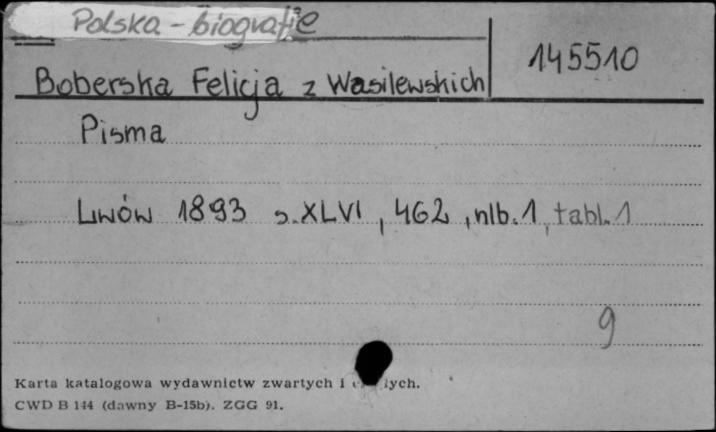 Polska - biografie
145510
Boberska Felicja z Wasilewskich
Pisma
Lwów 1893 s. XLVI, 462, nlb. 1, tabl. 1
9
Karta katalogowa wydawnictw zwartych i
CWD B 144 (dawny B-15b). ZGG 91.